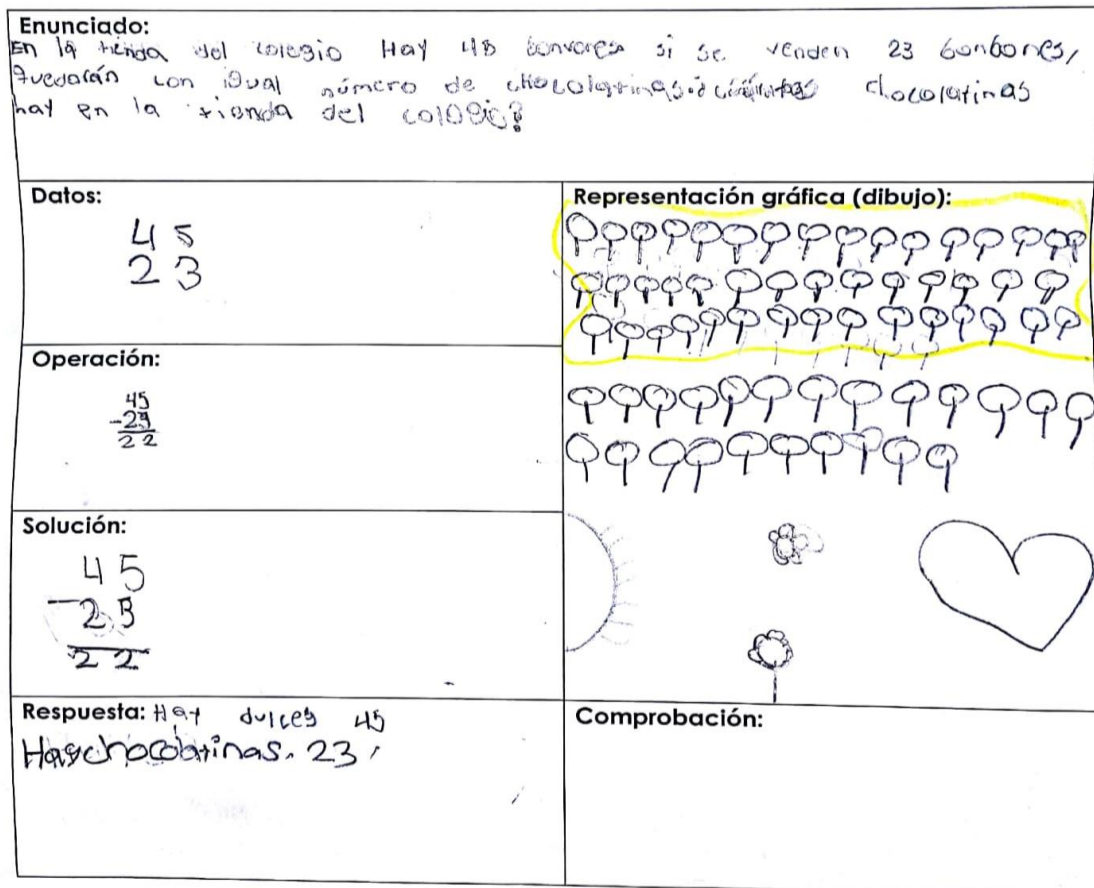 Enunciado:
En la tienda del colegio Hay 45 bonvores si se venden 23 bonbones,
quedarán con igual número de chocolatinas chocolatinas
hay en la tienda del colegio?
Datos:
45
23
Representación gráfica (dibujo):
Operación:
45
-23
22
Solución:
45
-23
22
Respuesta: Hay dulces 45
Hay chocolatinas. 23
Comprobación: